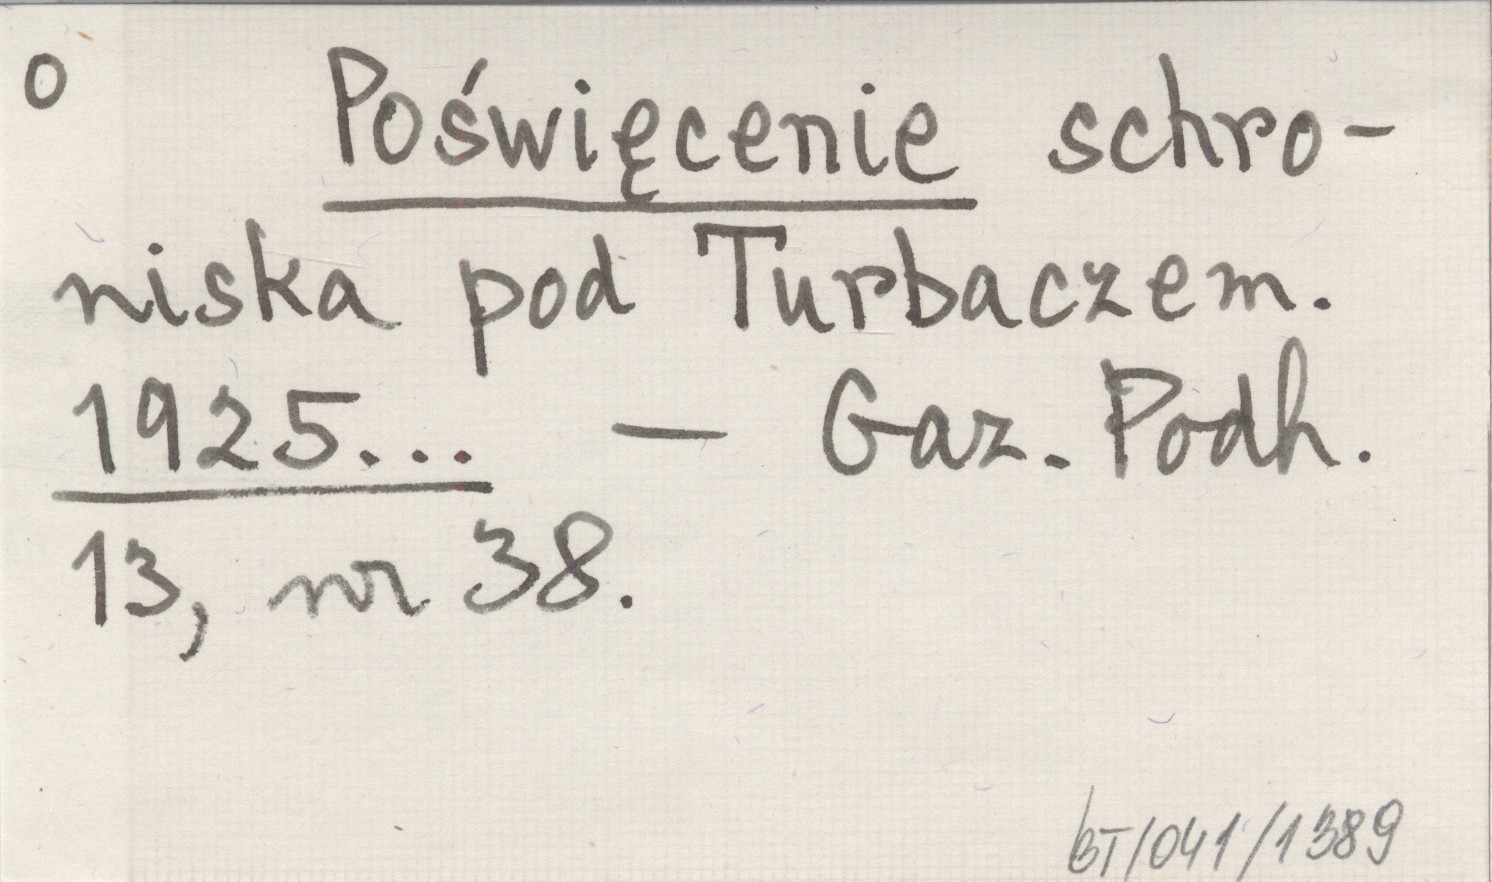 o Poświęcenie schro-
niska pod Turbaczem.
1925... — Gaz. Podh.
13, nr 38.
BT/041/1389